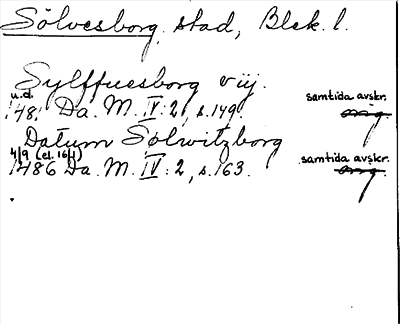 Sölvesborg, stad, Blek. l.
Sylffuesborg vüj.
u.d. samtida avskr.
1481 Da. M. IV:2, s.149. orig.
Datum Sølwitzborg
4/9 (el. 16/1) samtida avskr.
1486 Da. M. IV:2, s.163. orig.